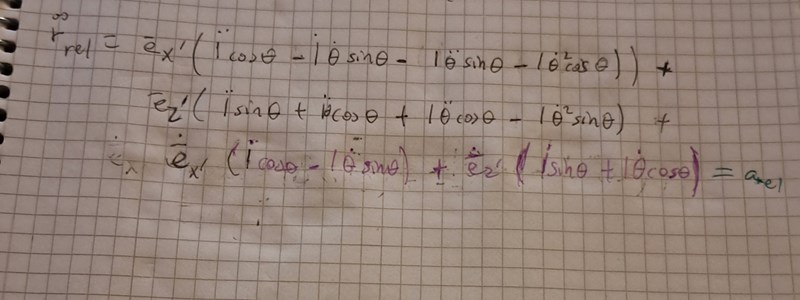 r̈_rel = ē_x' ( l̈ cosθ - l̇ θ̇ sinθ - l θ̈ sinθ - l θ̇² cosθ ) ) +
ē_z' ( l̈ sinθ + l̇ θ̇ cosθ + l θ̈ cosθ - l θ̇² sinθ ) +
ē̇_x' ( l̈ cosθ - l θ̈ sinθ ) + ē̇_z' ( l̇ sinθ + l θ̇ cosθ ) = a_rel